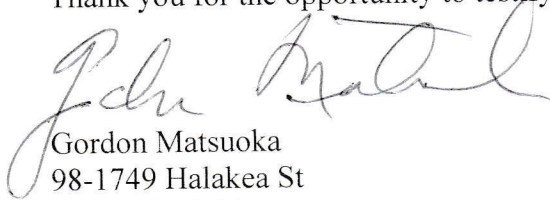 Thank you for the opportunity to testify
Gordon Matsuoka
98-1749 Halakea St